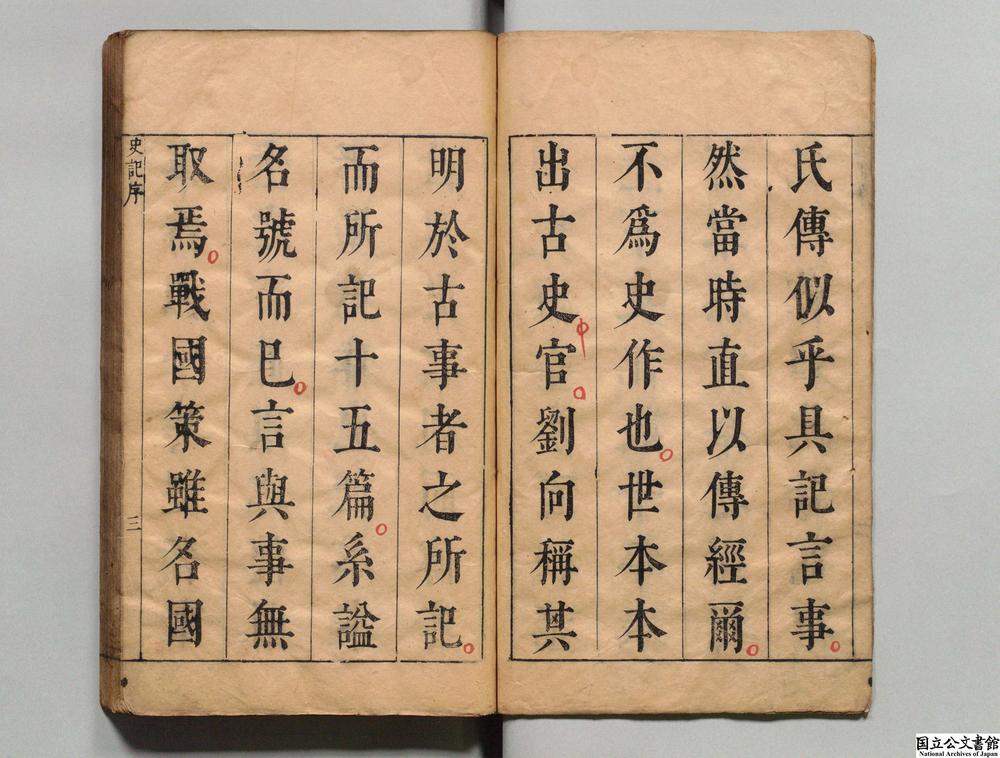 氏傳似乎具記言事
然當時直以傳經爾
不爲史作也世本本
出古史官劉向稱其
明於古事者之所記
而所記十五篇系謚
名號而已言與事無
取焉戰國策雖名國
史記序
三
国立公文書館
National Archives of Japan